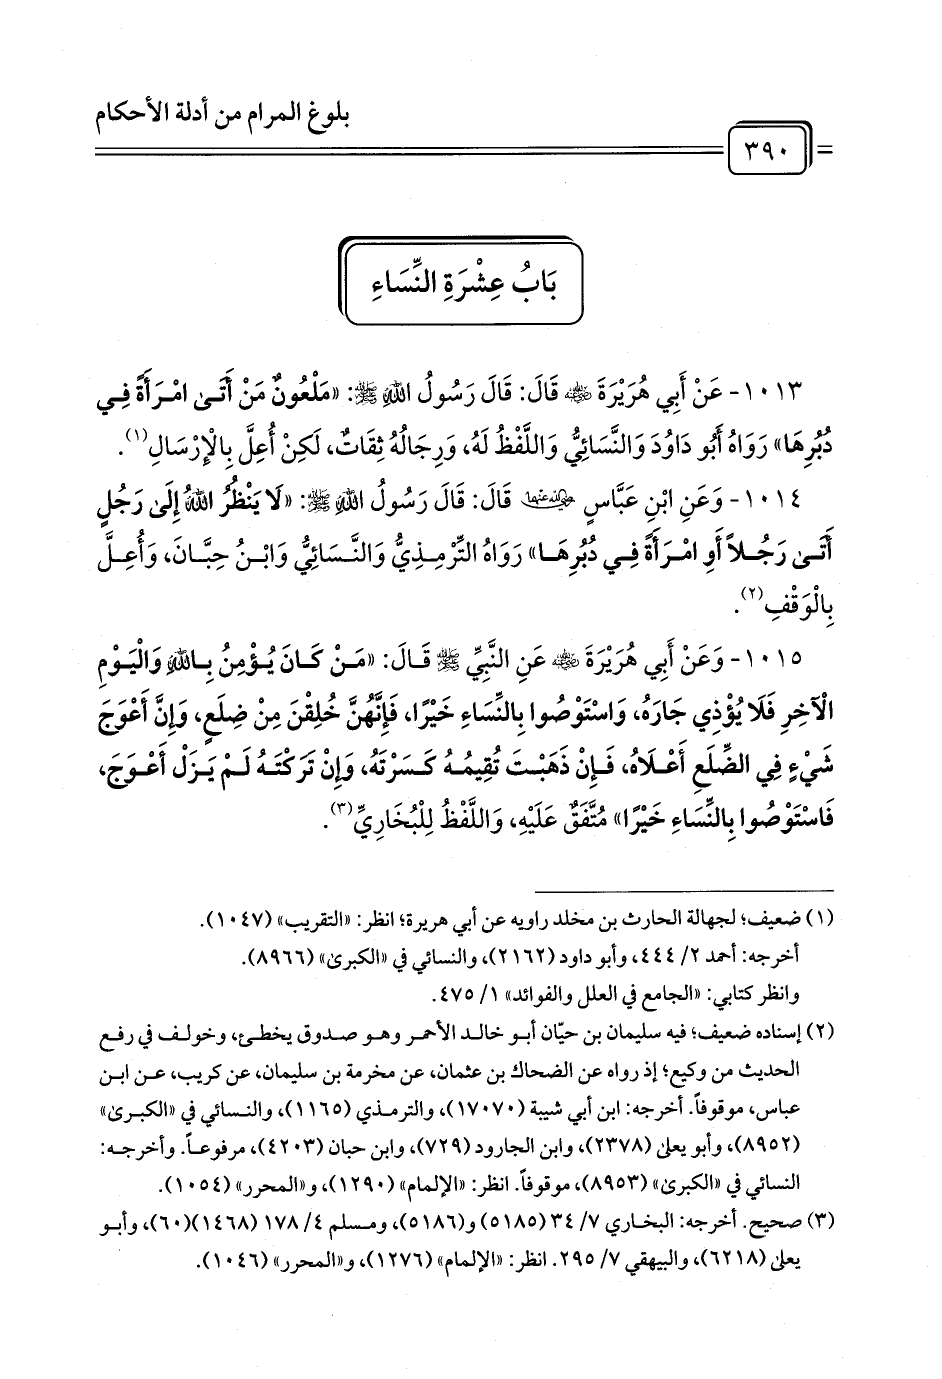 بلوغ المرام من أدلة الأحكام
٣٩٠
بَابُ عِشْرَةِ النِّسَاءِ
١٠١٣- عَنْ أَبِي هُرَيْرَةَ ﵁ قَالَ: قَالَ رَسُولُ اللهِ ﷺ: «مَلْعُونٌ مَنْ أَتَى امْرَأَةً فِي
دُبُرِهَا» رَوَاهُ أَبُو دَاوُدَ وَالنَّسَائِيُّ وَاللَّفْظُ لَهُ، وَرِجَالُهُ ثِقَاتٌ، لَكِنْ أُعِلَّ بِالْإِرْسَالِ(١).
١٠١٤- وَعَنِ ابْنِ عَبَّاسٍ ﵄ قَالَ: قَالَ رَسُولُ اللهِ ﷺ: «لَا يَنْظُرُ اللهُ إِلَى رَجُلٍ
أَتَى رَجُلاً أَوِ امْرَأَةً فِي دُبُرِهَا» رَوَاهُ التِّرْمِذِيُّ وَالنَّسَائِيُّ وَابْنُ حِبَّانَ، وَأُعِلَّ
بِالْوَقْفِ(٢).
١٠١٥- وَعَنْ أَبِي هُرَيْرَةَ ﵁ عَنِ النَّبِيِّ ﷺ قَالَ: «مَنْ كَانَ يُؤْمِنُ بِاللهِ وَالْيَوْمِ
الْآخِرِ فَلَا يُؤْذِي جَارَهُ، وَاسْتَوْصُوا بِالنِّسَاءِ خَيْرًا، فَإِنَّهُنَّ خُلِقْنَ مِنْ ضِلَعٍ، وَإِنَّ أَعْوَجَ
شَيْءٍ فِي الضِّلَعِ أَعْلَاهُ، فَإِنْ ذَهَبْتَ تُقِيمُهُ كَسَرْتَهُ، وَإِنْ تَرَكْتَهُ لَمْ يَزَلْ أَعْوَجَ،
فَاسْتَوْصُوا بِالنِّسَاءِ خَيْرًا» مُتَّفَقٌ عَلَيْهِ، وَاللَّفْظُ لِلْبُخَارِيِّ(٣).
(١) ضعيف؛ لجهالة الحارث بن مخلد راويه عن أبي هريرة؛ انظر: «التقريب» (١٠٤٧).
أخرجه: أحمد ٢/ ٤٤٤، وأبو داود (٢١٦٢)، والنسائي في «الكبرى» (٨٩٦٦).
وانظر كتابي: «الجامع في العلل والفوائد» ١/ ٤٧٥.
(٢) إسناده ضعيف؛ فيه سليمان بن حيّان أبو خالد الأحمر وهو صدوق يخطئ، وخولف في رفع
الحديث من وكيع؛ إذ رواه عن الضحاك بن عثمان، عن مخرمة بن سليمان، عن كريب، عن ابن
عباس، موقوفاً. أخرجه: ابن أبي شيبة (١٧٠٧٠)، والترمذي (١١٦٥)، والنسائي في «الكبرى»
(٨٩٥٢)، وأبو يعلى (٢٣٧٨)، وابن الجارود (٧٢٩)، وابن حبان (٤٢٠٣)، مرفوعاً. وأخرجه:
النسائي في «الكبرى» (٨٩٥٣)، موقوفاً. انظر: «الإلمام» (١٢٩٠)، و«المحرر» (١٠٥٤).
(٣) صحيح. أخرجه: البخاري ٧/ ٣٤ (٥١٨٥) و(٥١٨٦)، ومسلم ٤/ ١٧٨ (١٤٦٨)(٦٠)، وأبو
يعلى (٦٢١٨)، والبيهقي ٧/ ٢٩٥. انظر: «الإلمام» (١٢٧٦)، و«المحرر» (١٠٤٦).